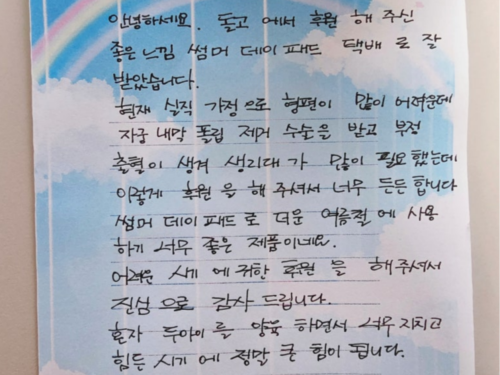 안녕하세요. 돌고 에서 후원 해 주신
좋은느낌 썸머 데이 패드 택배 로 잘
받았습니다.
현재 실직 가정 으로 형편이 많이 어려운데
자궁 내막 폴립 제거 수술을 받고 부정
출혈이 생겨 생리대 가 많이 필요 했는데
이렇게 후원 을 해 주셔서 너무 든든 합니다
썸머 데이 패드 로 더운 여름철 에 사용
하기 너무 좋은 제품이네요.
어려운 시기 에 귀한 후원 을 해 주셔서
진심 으로 감사 드립니다.
혼자 두아이 를 양육 하면서 너무 지치고
힘든 시기 에 정말 큰 힘이 됩니다.